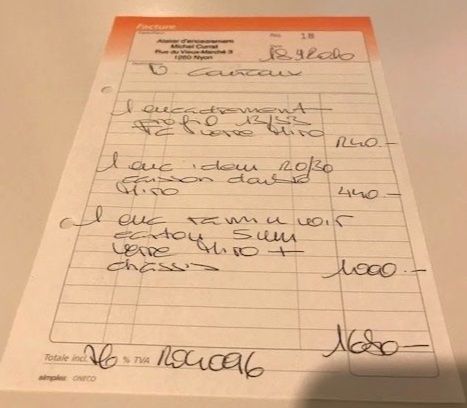 Facture
No. 18
Atelier d'encadrement
Michel Currat
Rue du Vieux-Marché 3
1260 Nyon
1 encadrement
profil 13/33
verre Miro
240.-
1 enc idem 20/30
caisson double
Miro
440.-
1 enc ramin noir
carton 5 mm
verre Miro +
chassis
1000.-
1680.-
Totale incl. % TVA
simplex ONECO